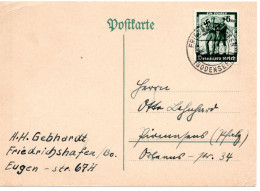 Postkarte
Deutsches Reich
FRIEDRICHSHAFEN
(BODENSEE)
Herrn
Otto Lehnhard
Pirmasens (Pfalz)
str 34
H.H. Gebhardt
Friedrichshafen/Bo.
Eugen-str. 67H